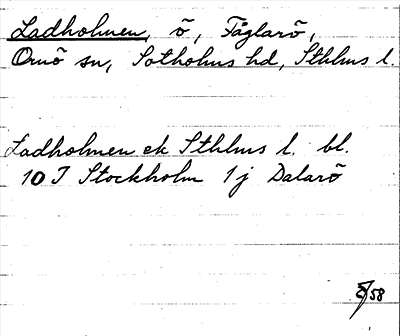 Ladholmen, ö, Fåglarö,
Ornö sn, Sotholms hd, Sthlms l.
Ladholmen ek Sthlms l. bl.
10 I Stockholm 1j Dalarö
58